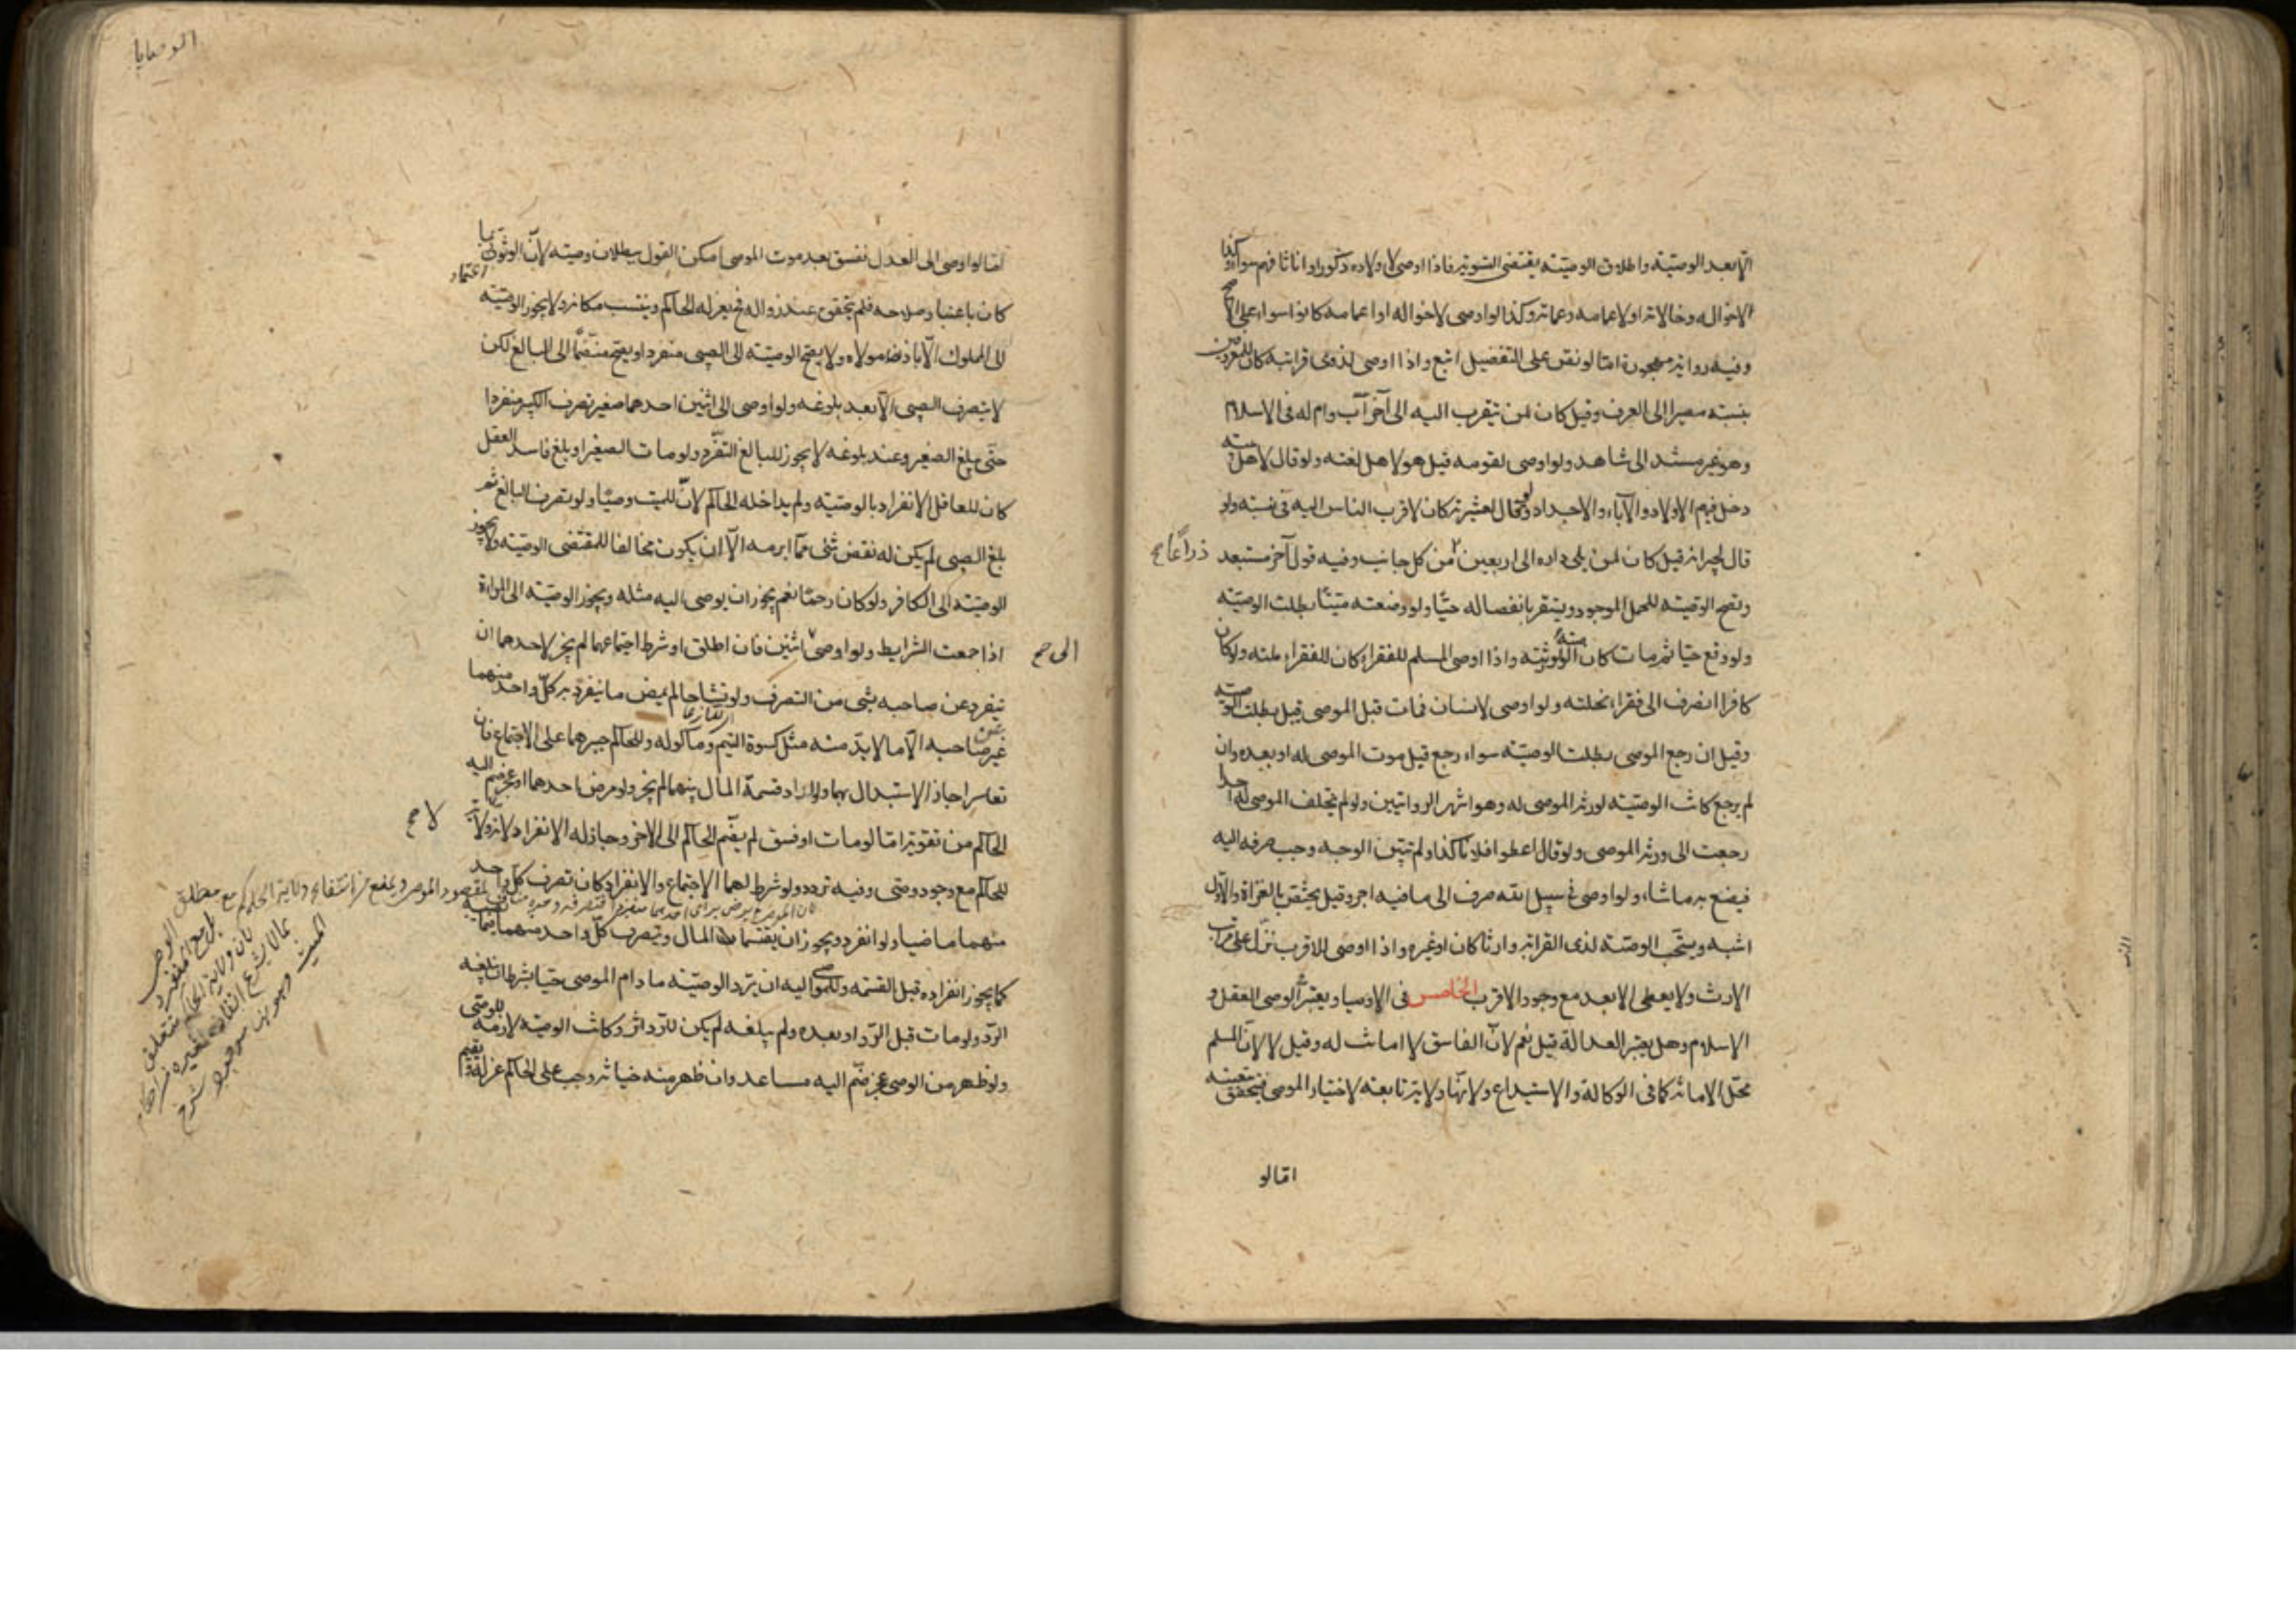 الا بعد الوصيّة واطلاق الوصيّة يقتضى التسوية فاذا اوصى لاولاده ذكورا واناثا فهم سواء وكذا
لاخواله وخالاته او لاعمامه وعماته وكذا لو اوصى لاخواله او اعمامه كانوا سواء على الاصح
وفيه رواية مهجورة امّا لو نصّ على التفضيل اتبع واذا اوصى لذوى قرابته كان للمعروفين
بنسبه مصيرا الى العرف وقيل كان لمن يتقرب اليه الى آخر أب وام له فى الاسلام
وهو غير مستند الى شاهد ولو اوصى لقومه قيل هو لاهل لغته ولو قال لاهل بيته
دخل فيهم الاولاد والآباء والاجداد ولو قال لعشيرته كان لاقرب الناس اليه فى نسبه ولو
قال لجيرانه قيل كان لمن يلى داره الى اربعين من كل جانب وفيه قول آخر مستبعد
ذراعًا صح
وتصح الوصيّة للحمل الموجود ويستقر بانفصاله حيّا ولو وضعته ميّتًا بطلت الوصيّة
ولو وقع حيّا ثم مات كانت الوصيّة لورثته واذا اوصى المسلم للفقراء كان للفقراء ملته ولو كان
كافرا انصرف الى فقراء نحلته ولو اوصى لانسان فمات قبل الموصى قيل بطلت الوصية
وقيل ان رجع الموصى بطلت الوصيّة سواء رجع قبل موت الموصى له او بعده وان
لم يرجع كانت الوصيّة لورثة الموصى له وهو اشهر الروايتين ولو لم يخلف الموصى له احدا
رجعت الى ورثة الموصى ولو قال اعطوا فلانا كذا ولم يبيّن الوجه وجب صرفه اليه
فيضع به ما شاء ولو اوصى فى سبيل الله صرف الى ما فيه اجر وقيل يختصّ بالغزاة والاوّل
اشبه ويستحب الوصيّة لذى القرابة وارثا كان او غيره واذا اوصى للاقرب نزّل على مراتب
الارث ولا يعطى الابعد مع وجود الاقرب الخامس فى الاوصياء ويعتبر فى الوصى العقل و
الاسلام وهل يعتبر العدالة قيل نعم لانّ الفاسق لا امانة له وقيل لا لانّ المسلم
محلّ الامانة كما فى الوكالة والاستيداع ولانّها ولاية تابعة لاختيار الموصى فيتحقق بتعيينه
امّا لو
الوصايا
امّا لو اوصى الى العدل ففسق بعد موت الموصى امكن القول ببطلان وصيته لانّ الوثوق بما
كان باعتبار صلاحه فلم يتحقق عند زواله فح يعزله الحاكم وينتسب مكانه ولا يجوز الوصيّة
الى المملوك الّا باذن مولاه ولا يصح الوصيّة الى الصبى منفردا ويصحّ منضمّا الى البالغ لكن
لا يتصرف الصبى الا بعد بلوغه ولو اوصى الى اثنين احدهما صغير تصرف الكبير منفردا
حتّى يبلغ الصغير وعند بلوغه لا يجوز للبالغ التفرّد ولو مات الصغير او بلغ فاسد العقل
كان للعاقل الانفراد بالوصيّة ولم يداخله الحاكم لانّ للميت وصيّا ولو تصرف البالغ ثم
بلغ الصبى لم يكن له نقض شئ ممّا ابرمه الّا ان يكون مخالفا لمقتضى الوصيّة ولا يجوز
الوصيّة الى الكافر ولو كان رحمًا نعم يجوز ان يوصى اليه مثله ويجوز الوصيّة الى المراة
اذا جمعت الشرايط ولو اوصى اثنين فان اطلق او شرط اجتماعهما لم يجز لاحدهما ان
الى صح
ينفرد عن صاحبه بشئ من التصرف ولو تشاحا لم يمض ما ينفرد به كلّ واحد منهما
عن صاحبه الّا ما لا بدّ منه مثل كسوة اليتيم وماكوله وللحاكم جبرهما على الاجتماع فان
تعاسرا جاز الاستبدال بهما ولو ارادا قسمة المال بينهما لم يجز ولو مرض احدهما او عجز ضم اليه
الحاكم من يقويه امّا لو مات او فسق لم يضم الحاكم الى الاخر وجاز له الانفراد لانه ولاية
لا صح
للحاكم مع وجود وصى وفيه تردد ولو شرط لهما الاجتماع والانفراد كان تصرف كلّ واحد
منهما ماضيا ولو انفرد ويجوز ان يقتسما المال ويتصرف كلّ واحد منهما فيما يصيبه
كما يجوز انفراده قبل القسمه وللموصى اليه ان يردّ الوصيّة ما دام الموصى حيّا بشرط ان يبلغه
الردّ ولو مات قبل الردّ او بعده ولم يبلغه لم يكن للردّ اثر وكانت الوصيّة لازمة للوصى
ولو ظهر من الوصى عجز ضمّ اليه مساعد وان ظهر منه خيانة وجب على الحاكم عزله ويقيم